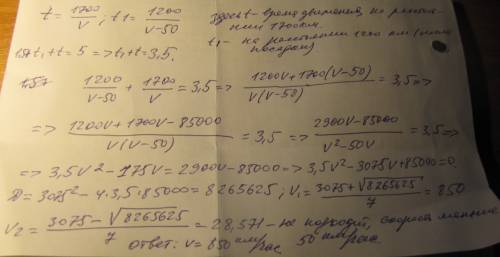 t = 1700/V ; t1 = 1200/(V-50)
Здесь t - время движения на расстоя-
нии 1700км.
t1 - на расстоянии 1200 км (после
посадки)
1,5+t1+t = 5 => t1+t = 3,5.
1200/(V-50) + 1700/V = 3,5 => (1200V+1700(V-50))/(V(V-50)) = 3,5 =>
=> (1200V+1700V-85000)/(V(V-50)) = 3,5 => (2900V-85000)/(V²-50V) = 3,5 =>
=> 3,5V²-175V = 2900V-85000 => 3,5V²-3075V+85000=0.
D = 3075²-4·3,5·85000 = 8265625; V1 = (3075+√8265625)/7 = 850
V2 = (3075-√8265625)/7 = 28,571 - не подходит, скорость меньше
50 км/час.
ответ: V = 850 км/час